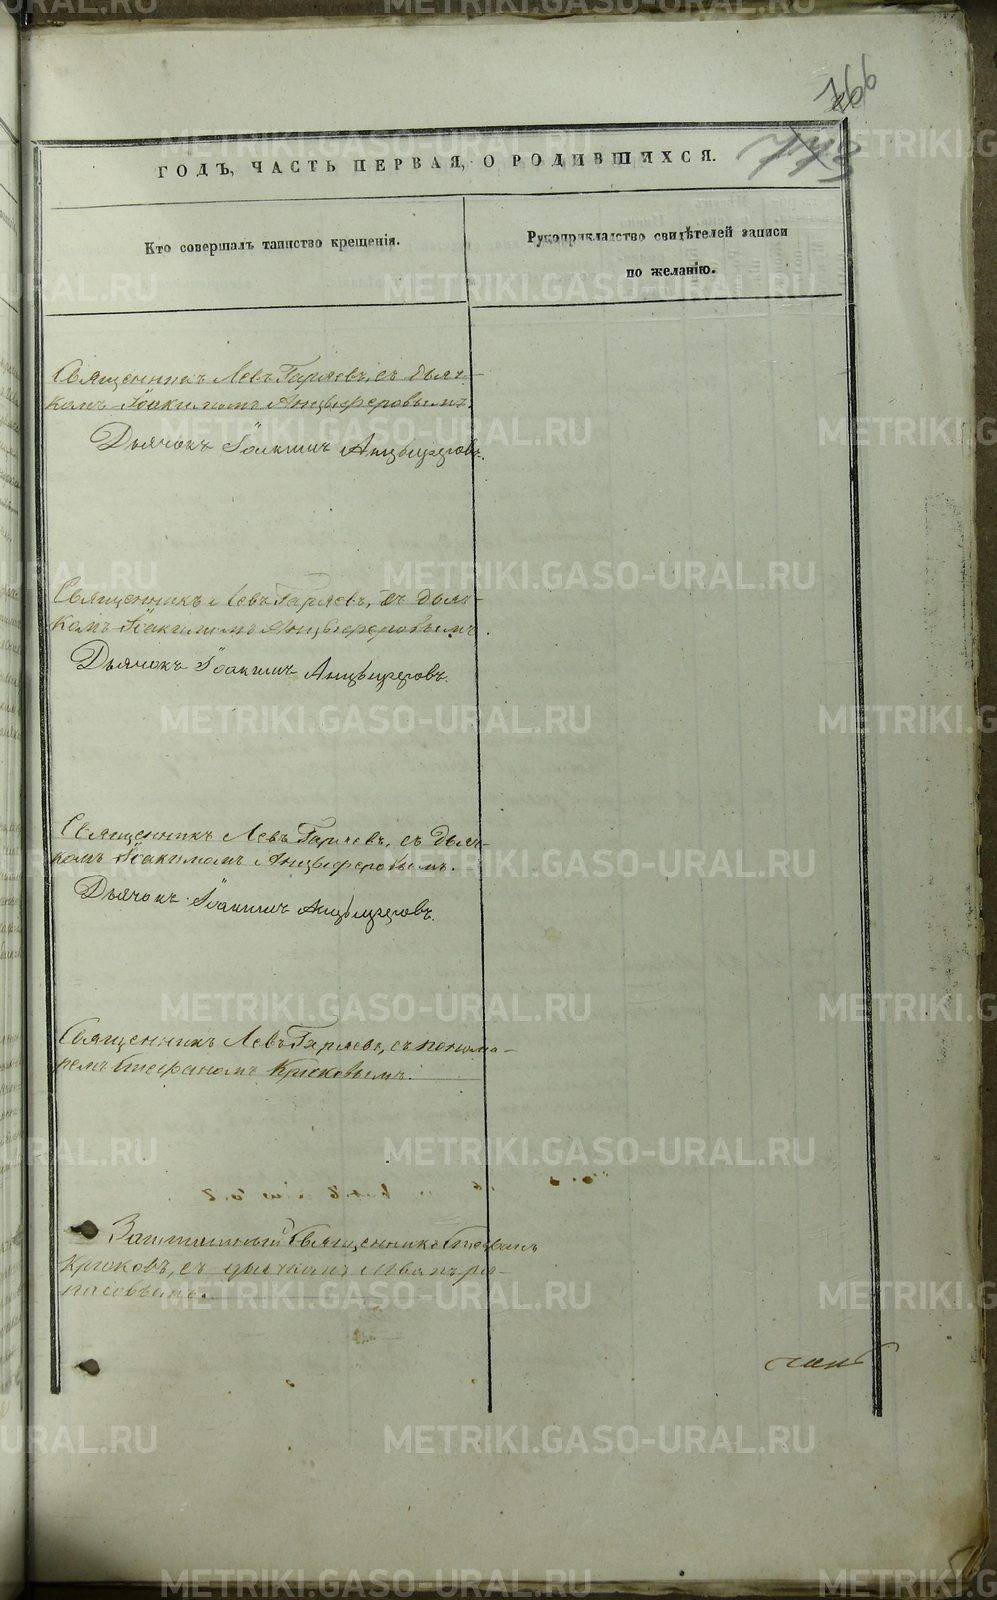 766
773
ГОДЪ, ЧАСТЬ ПЕРВАЯ, О РОДИВШИХСЯ.
Кто совершалъ таинство крещенія.
Рукоприкладство свидѣтелей записи
по желанію.
Священникъ Левъ Гаряевъ, съ дьяч-
комъ Іоакимомъ Анцыферовымъ.
Дьячокъ Іоакимъ Анцыферовъ.
Священникъ Левъ Гаряевъ, съ дьяч-
комъ Іоакимомъ Анцыферовымъ.
Дьячокъ Іоакимъ Анцыферовъ.
Священникъ Левъ Гаряевъ, съ дьяч-
комъ Іоакимомъ Анцыферовымъ.
Дьячокъ Іоакимъ Анцыферовъ.
Священникъ Левъ Гаряевъ, съ понома-
ремъ Стефаномъ Крюковымъ.
Заштатный Священникъ Стефанъ
Крюковъ, съ дьячкомъ
METRIKI.GASO-URAL.RU